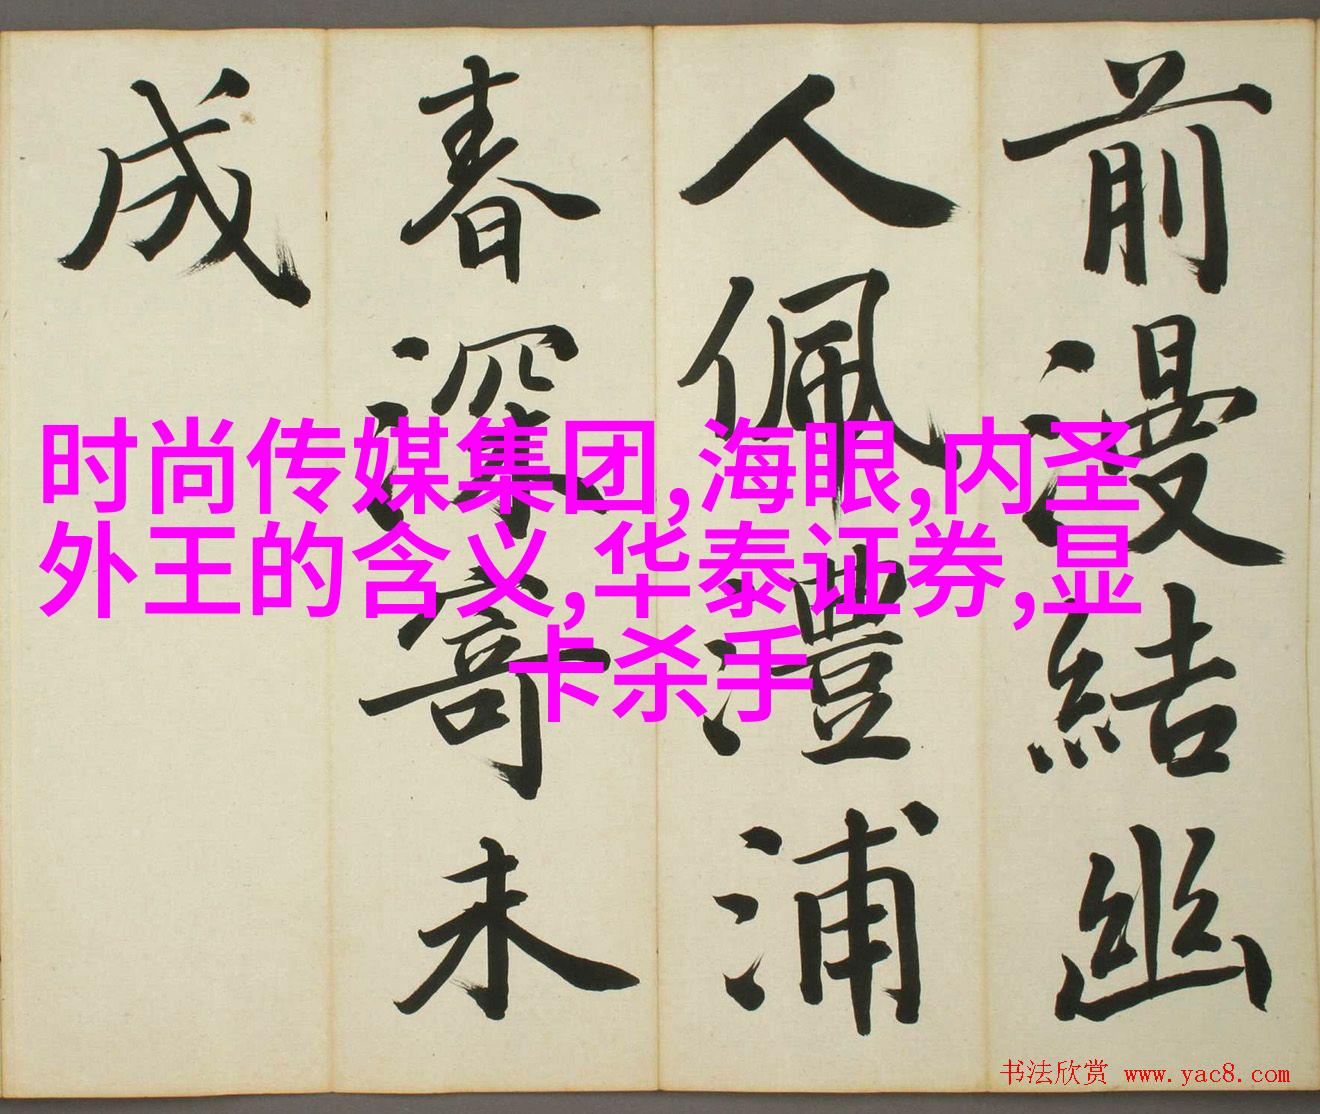 前漫結幽
人佩澧浦
春深寄未
成
时尚传媒集团,海眼,内圣
外王的含义,华泰证券,显
卡杀手
书法欣赏 www.yac8.com